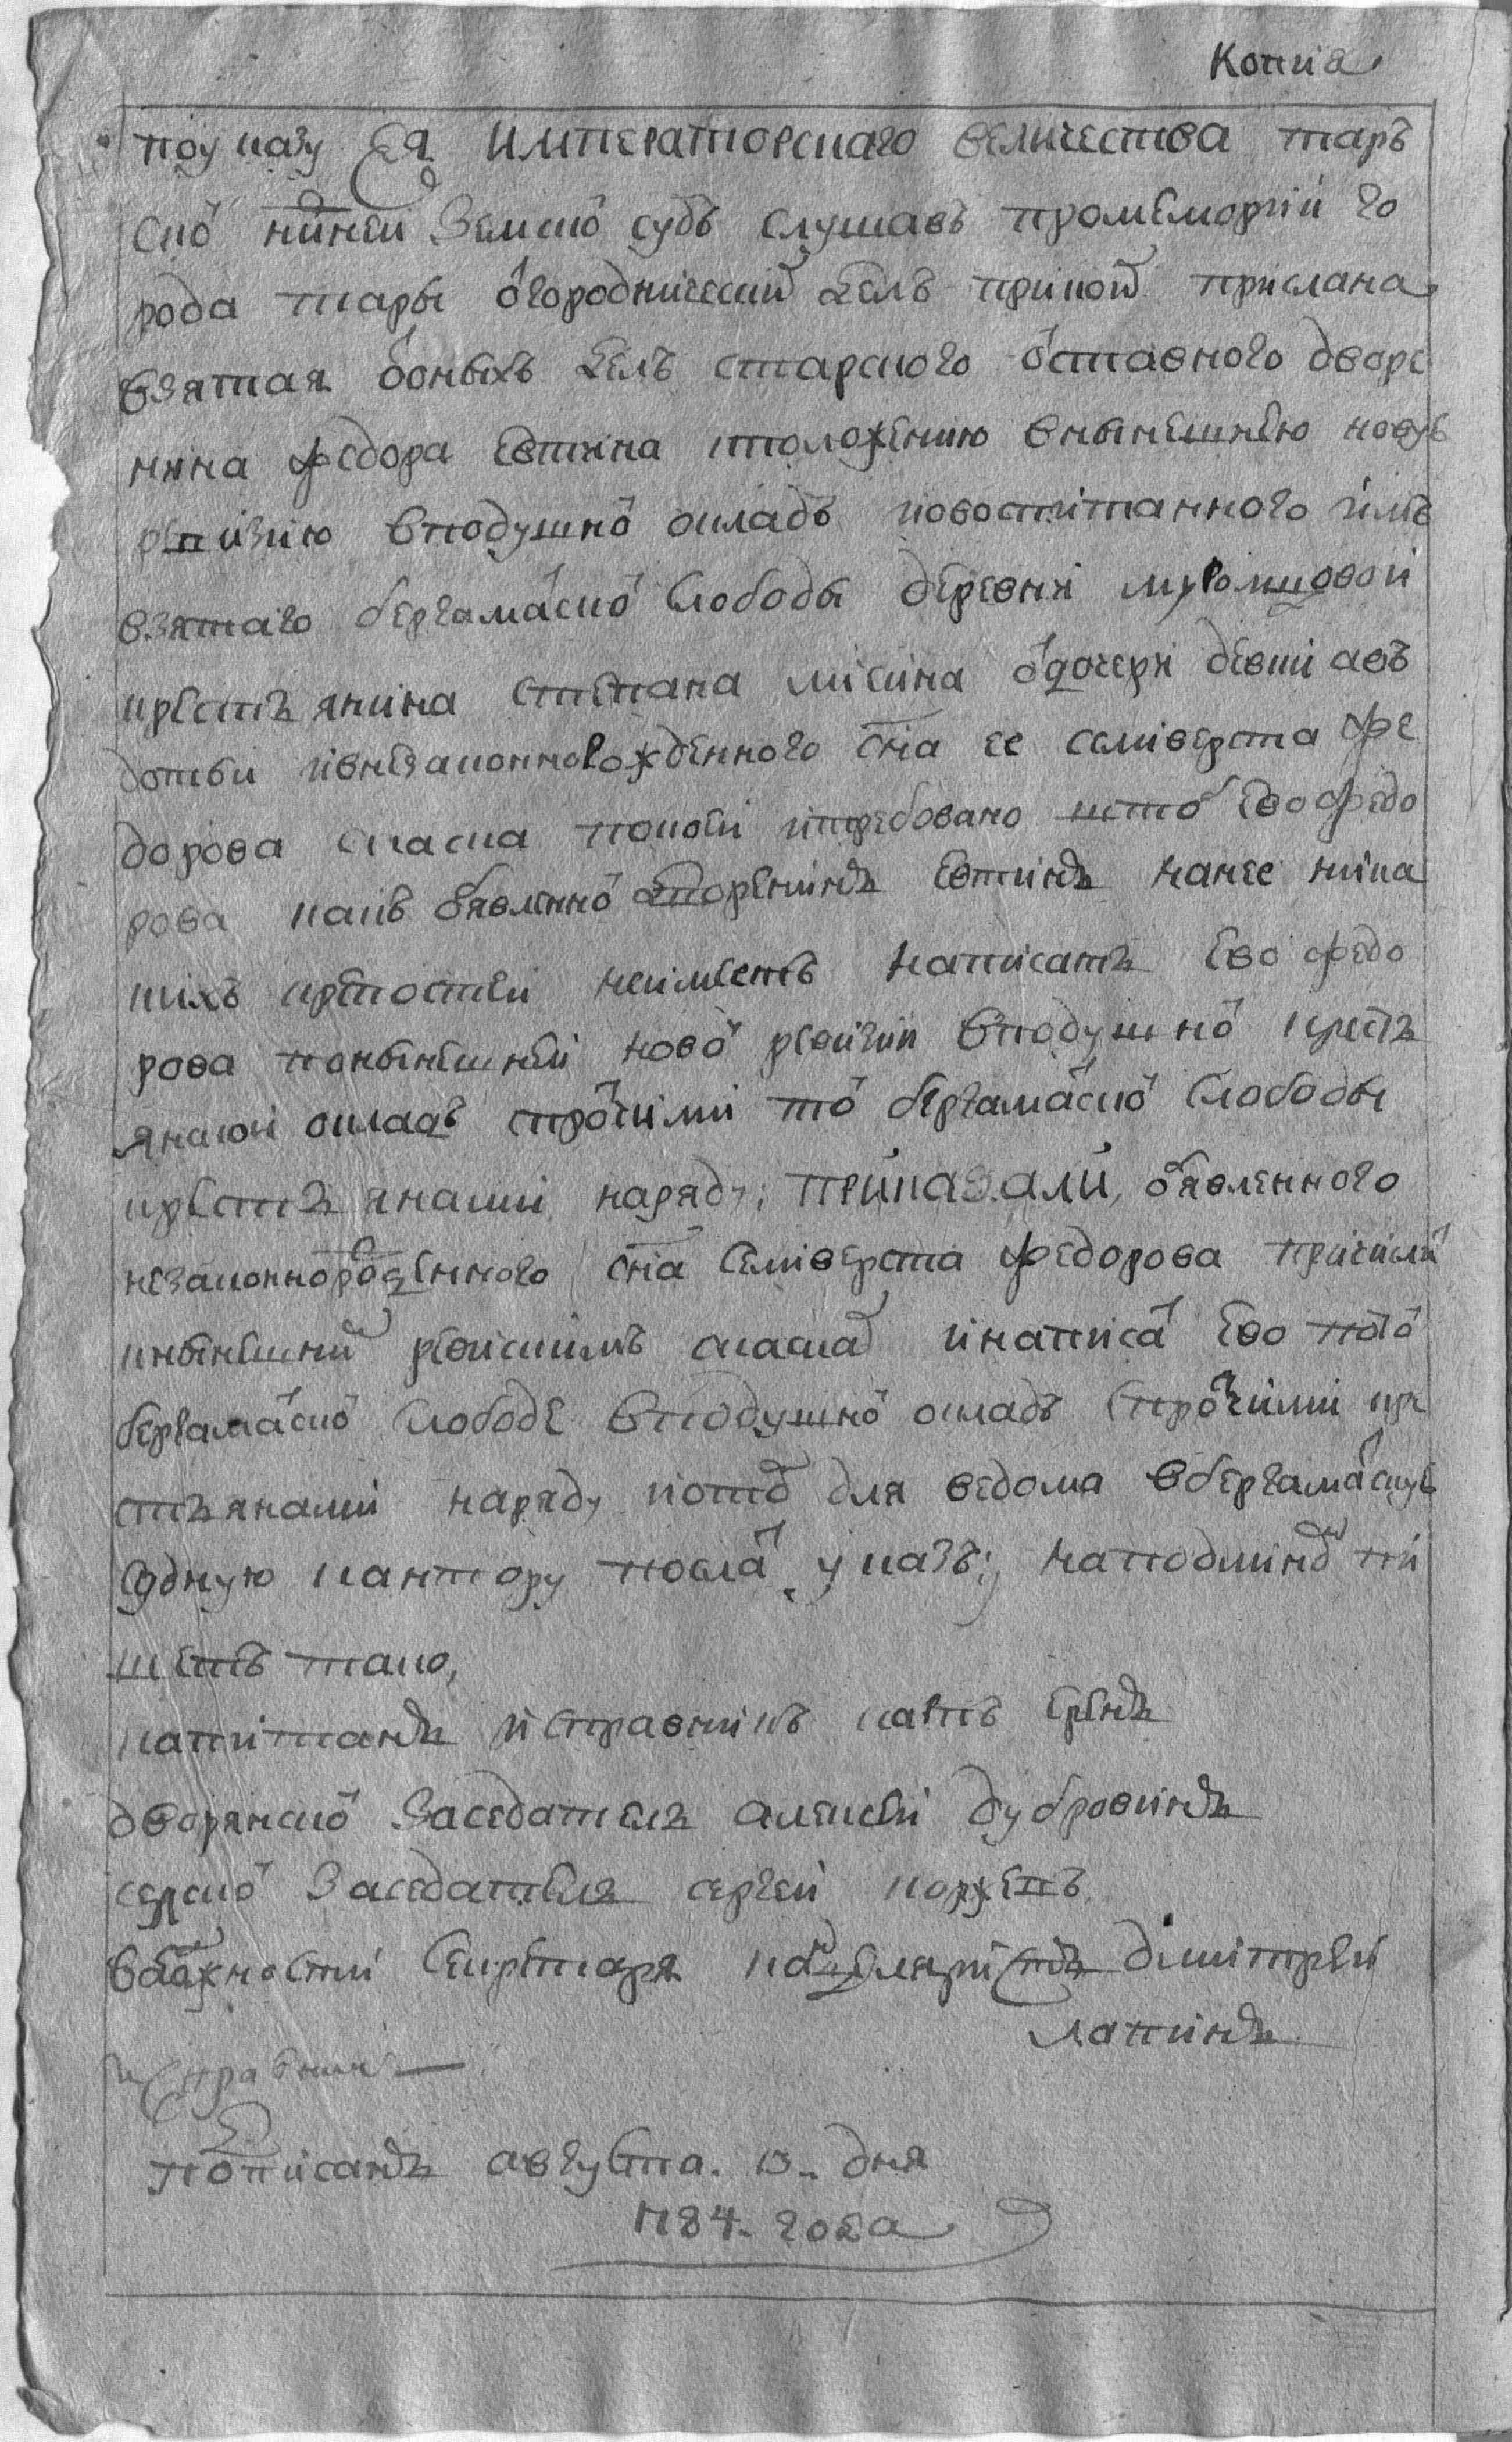 Копиа
поуказу Ея Императорскаго величества таръ
ской нижней Земской судъ слушавъ промемории го
рода тары огороднических делъ прикоей прислана
взятая воныхъ делъ старского отставного дворе
нина федора евтина кположению внынешнею новую
ревизию вподушной окладъ ковоспитанного имъ
взятаго бергамацкой слободы деревни муромцовой
крестьянина степана мисина отдочери девки авъ
дотьи ивнезаконнорожденного сна ее селиверста фе
дорова скаска покоей итребовано чтоб ево федо
рова какъ объявленной дворенинъ евтинъ нанее ника
кихъ крепостей неимеетъ написать ево федо
рова понынешней новой ревизии вподушной кресть
янской окладъ спротчими той бергамацкой слободы
крестьянами наряду; приказали, объявленного
незаконнорожденного сна селиверста федорова причислить
кнынешним ревискимъ скаскам инаписать ево потой
бергамацкой слободе вподушной окладъ спротчими кре
стьянами наряду иотом для ведома вбергамацкую
судную кантору послать указъ; наподлинном пи
шетъ тако,
капитанъ исправникъ карпъ еренъ
дворянской заседатель алексей дубровинъ
селской заседатель сергей коржевъ
вдолжности секретаря канцеляристъ димитрей
лапинъ
исправник
подписанъ августа. 13. дня
1784. года